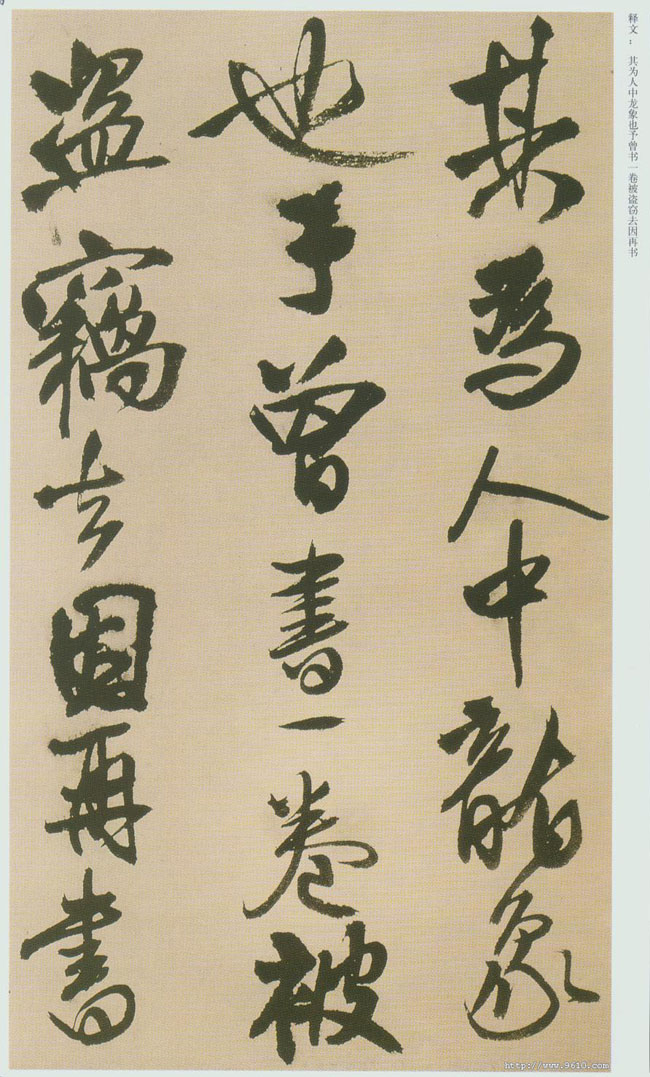 释文： 其为人中龙象也予曾书一卷被盗窃去因再书
其為人中龍象
也予曾書一卷被
盜竊去因再書
http://www.9610.com